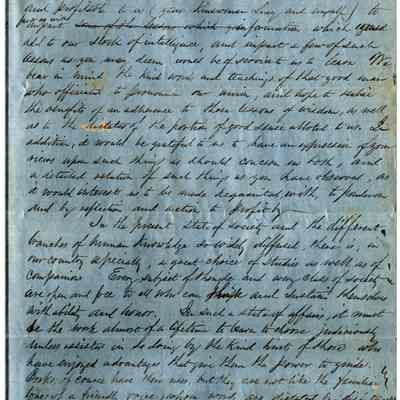 and profitable to us (your kinswoman Lucy and myself) to
impart information which would
add to our stock of intelligence, and impart a few of such
lessons as you may deem would be of service to us to learn. We
bear in mind the kind words and teachings of that good man
who officiated to pronounce our union, and hope to realize
the benefits of an adherence to those lessons of wisdom, as well
as to the dictates of the portion of good sense allotted to us. In
addition, it would be grateful to us to have an expression of your
views upon such things as should concern us both, and
a detailed relation of such things as you have observed, as
it would interest us to be made acquainted with, to ponder on
and by reflection and action profit by.
In the present state of society and the different
branches of human knowledge so widely diffused, there is, in
our country especially, a great choice of studies as well as of
companions. Every subject of thought and every class of society
are open and free to all who can think and sustain themselves
with ability and honor. In such a state of affairs, it must
be the work almost of a lifetime to learn to choose judiciously
unless assisted in so doing by the kind hints of those who
have enjoyed advantages that give them the power to guide.
Books, of course have their uses, but they are not like the
tones of a friendly voice, whose words are dictated by